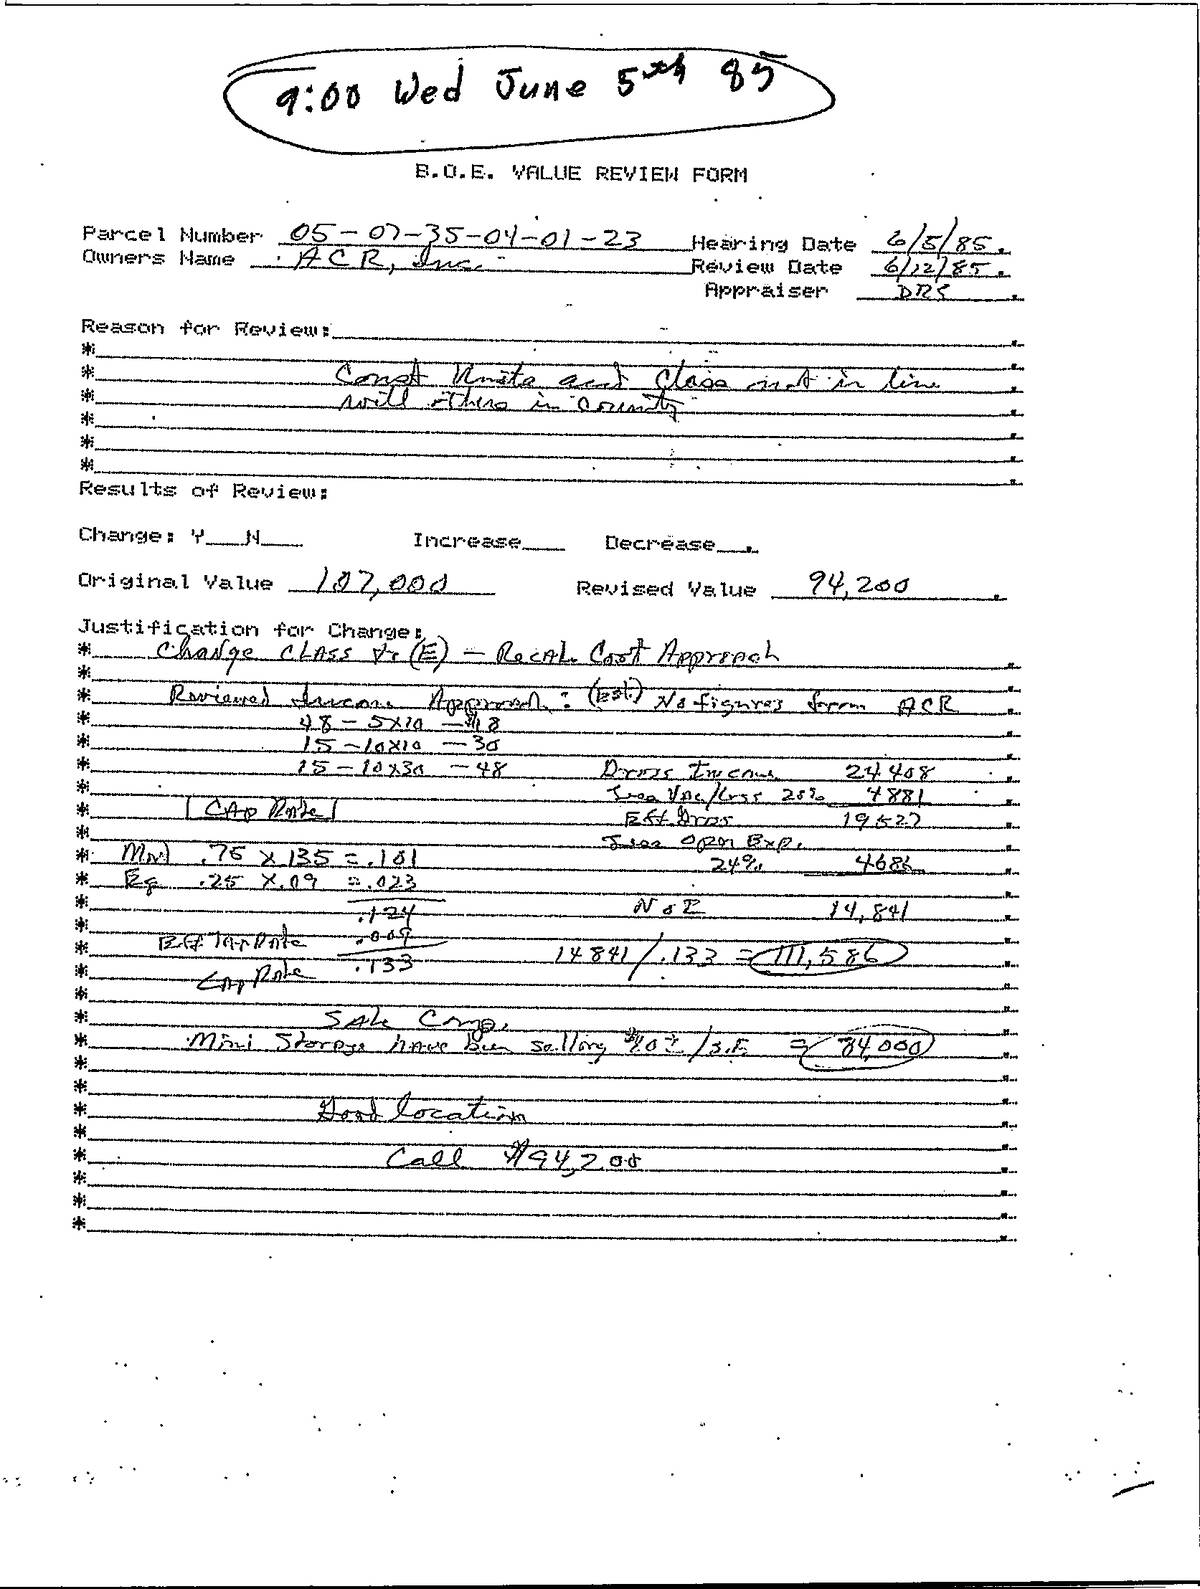 9:00 Wed June 5th 85
B.O.E. VALUE REVIEW FORM
Parcel Number 05-07-35-04-01-23 Hearing Date 6/5/85.
Owners Name ACR, Inc. Review Date 6/12/85.
Appraiser DRS.
Reason for Review:
*
* Const Units and Class not in line
* with others in County
*
*
*
Results of Review:
Change: Y___N___ Increase___ Decrease___.
Original Value 107,000 Revised Value 94,200.
Justification for Change:
* Change CLASS to (E) - Recal. Cost Approach
*
* Reviewed Income Approach: (Est.) No figures from ACR
* 48 - 5X10 - $18
* 15 - 10X10 - 30
* 15 - 10X30 - 48 Gross Income 24408
* Less Vac/Loss 20% 4881
* CAp Rate Eff Gross 19527
* Less Open Exp.
* Mort .75 X .135 = .101 24% 4686
* Eq .25 X .09 = .023
* .124 NOE 14,841
* .009
* Eff Tax Rate 14841/.133 = 111,586
* CAp Rate .133
*
* SALe Comp.
* Mini Storage have been selling $10± /S.F. = 84,000
*
*
* Good location
*
* Call $94,200
*
*
*